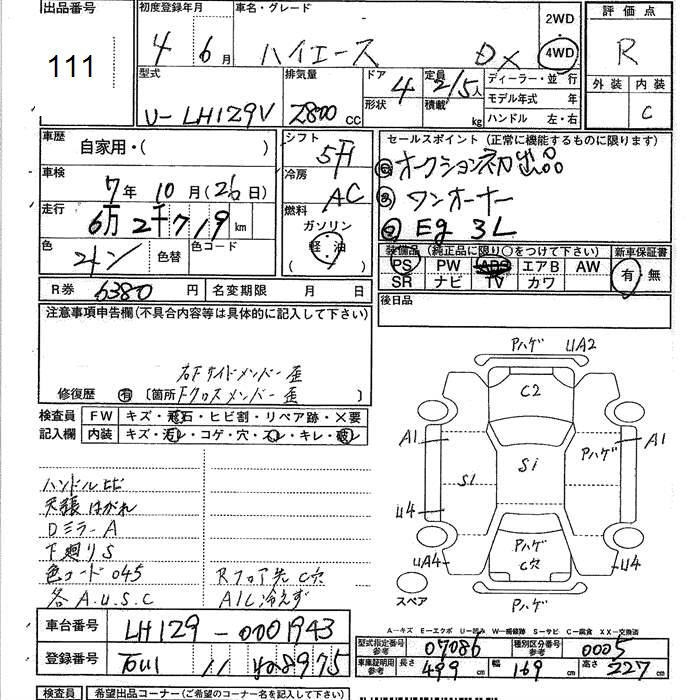 出品番号 初度登録年月 車名・グレード 2WD 評価点
111 4年 6月 ハイエース DX 4WD R
型式 排気量 ドア 4 定員 2/5人 ディーラー・並行 外装 内装
形状 積載 kg モデル年式 年
U-LH129V 2800 CC ハンドル 左・右 C
車歴 自家用・( ) シフト 5F セールスポイント(正常に機能するものに限ります)
車検 7年 10月(26日) 冷房 AC オークション初出品
走行 6万2千719km 燃料 ワンオーナー
ガソリン Eg 3L
色 色替 色コード 軽油 装備品(純正品に限り○をつけて下さい) 新車保証書
( ) PS PW ABS エアB AW 有・無
R券 6380円 名変期限 月 日 SR ナビ TV カワ
注意事項申告欄(不具合内容等は具体的に記入して下さい) 後日品
右Fサイドメンバー歪
修復歴 有 [箇所 Fクロスメンバー歪 ]
検査員 FW キズ・飛石・ヒビ割・リペア跡・×要
記入欄 内装 キズ・汚レ・コゲ・穴・スレ・キレ・破レ
Pハゲ UA2
C2
A1 Pハゲ A1
S1 Si
U4
Pハゲ
C穴
UA4 U4
Pハゲ
スペア
ハンドルヒビ
天張はがれ
Dミラー A
下廻りS
色コード 045 Rフロア先 C穴
各A.U.S.C A/C冷えず
A-キズ E-エクボ U-凹み W-補修跡 S-サビ C-腐食 XX-交換済
車台番号 LH129-0001943
型式指定番号 参考 07086 種別区分番号 参考 0005
登録番号 11 車庫証明用 参考 長さ 499cm 幅 169cm 高さ 227cm
検査員 希望出品コーナー(ご希望のコーナー名を記入下さい)